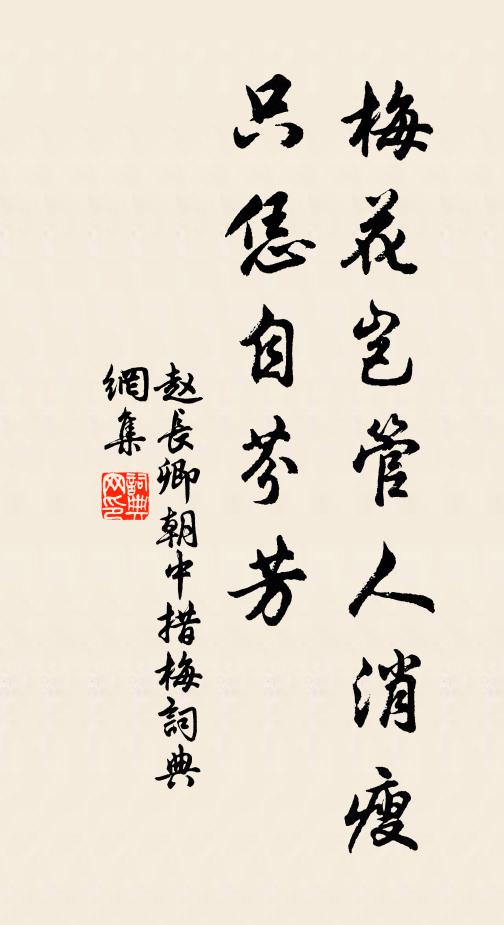 梅花岂管人消瘦
只恁自芬芳
赵長卿朝中措梅詞典
網集
詞典网印